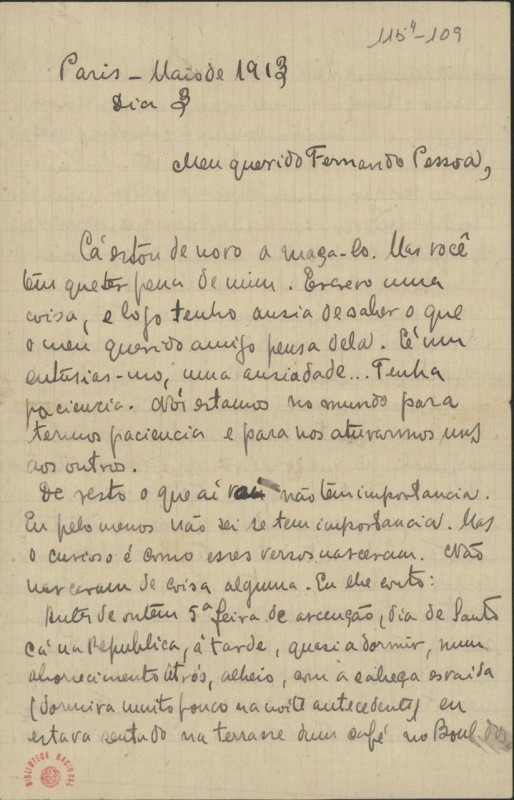 115⁴-109
Paris – Maio de 1913
Dia 3
Meu querido Fernando Pessoa,
Cá estou de novo a maça-lo. Mas você
têm que ter pena de mim. Escrevo uma
coisa, e logo tenho ansia de saber o que
o meu querido amigo pensa dela. É um
entusias-mo, uma ansiadade... Tenha
paciencia. Nós estamos no mundo para
termos paciencia e para nos aturarmos uns
aos outros.
De resto o que aí vai não têm importancia.
Eu pelo menos não sei se tem importancia. Mas
o curioso é como esses versos nasceram. Não
nasceram de coisa alguma. Eu lhe conto:
Antes de ontem 5ª feira de ascenção, dia de Santo
cá na Republica, á tarde, quasi a dormir, num
aborrecimento atrós, alheio, com a cabeça esvaida
(dormira muito pouco na noite antecedente) eu
estava sentado na terrasse dum café no Boul. dos
BIBLIOTECA NACIONAL